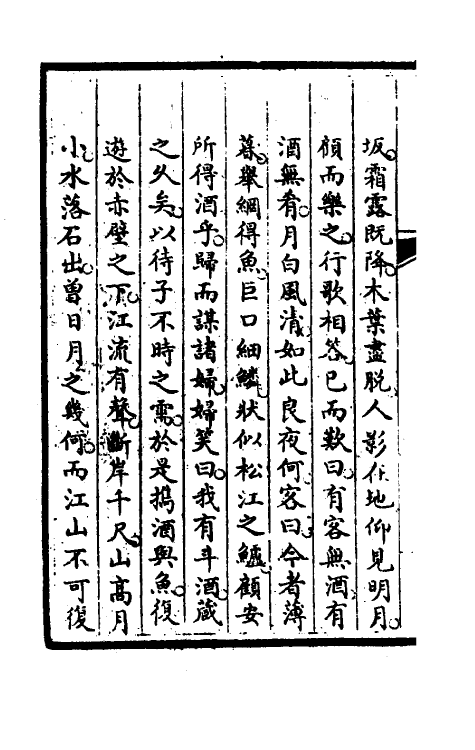 坂霜露既降木葉盡脱人影在地仰見明月
顧而樂之行歌相答已而歎曰有客無酒有
酒無肴月白風清如此良夜何客曰今者薄
暮舉網得魚巨口細鱗狀似松江之鱸顧安
所得酒乎歸而謀諸婦婦笑曰我有斗酒蔵
之久矣以待子不時之需於是携酒與魚復
遊於赤壁之下江流有聲斷岸千尺山高月
小水落石出曾日月之幾何而江山不可復